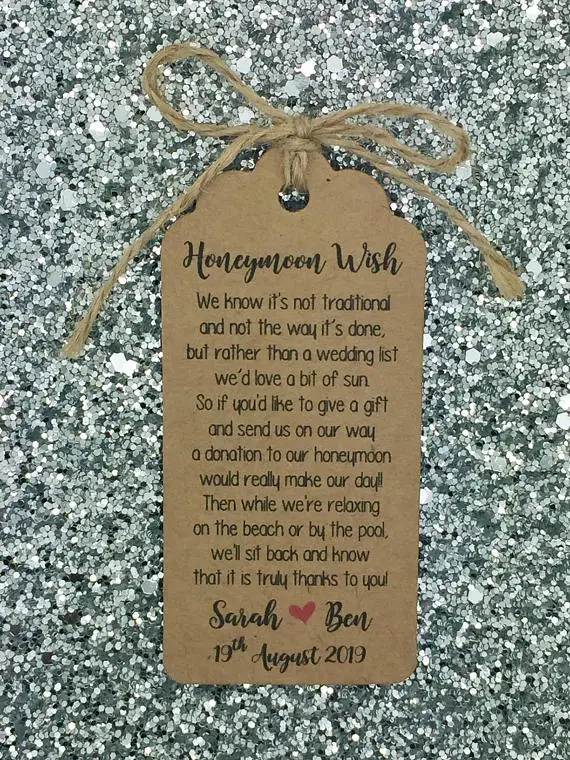 Honeymoon Wish
We know it's not traditional
and not the way it's done,
but rather than a wedding list
we'd love a bit of sun.
So if you'd like to give a gift
and send us on our way
a donation to our honeymoon
would really make our day!!
Then while we're relaxing
on the beach or by the pool,
we'll sit back and know
that it is truly thanks to you!
Sarah ❤ Ben
19th August 2019